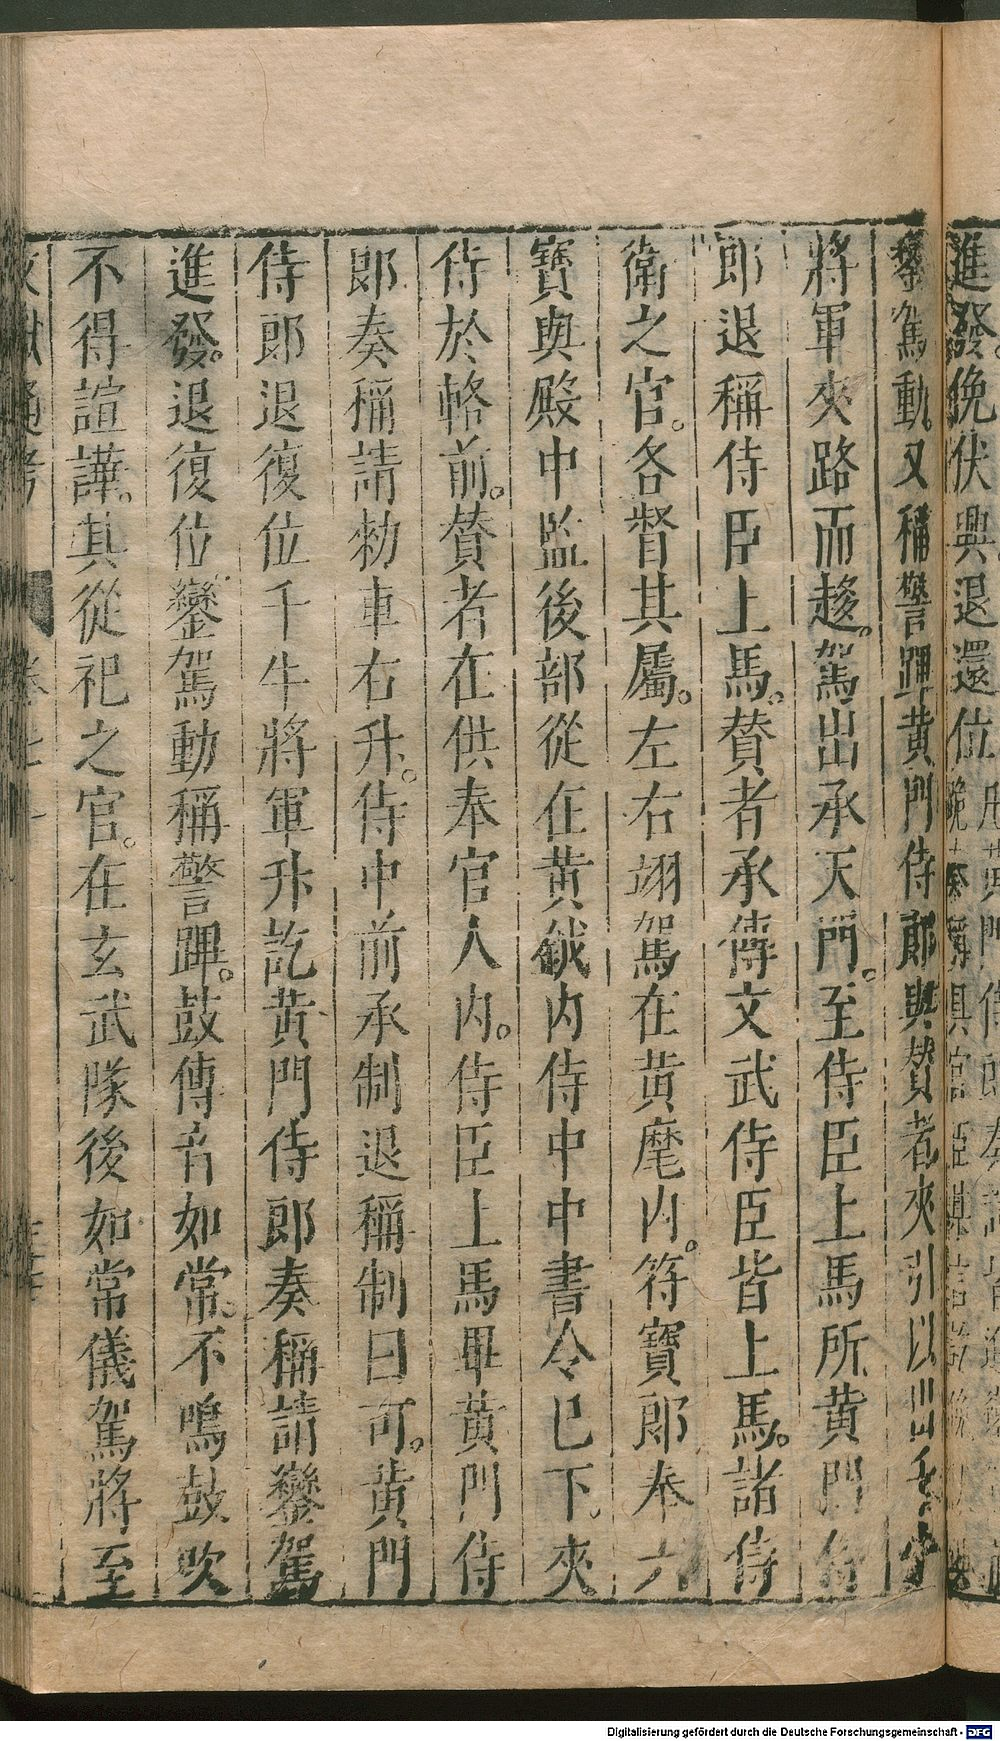 進發。俛伏興退還位
鑾駕動。又稱警蹕黃門侍郎與贊者夾引以出千牛
將軍夾路而趍。駕出承天門。至侍臣上馬所黃門侍
郎退稱侍臣上馬。贊者承傳文武侍臣皆上馬。諸侍
衛之官。各督其屬。左右翊駕在黃麾內。符寶郎奉六
寶與殿中監後部從在黃鉞內侍中中書令已下。夾
侍於輅前。贊者在供奉官人內。侍臣上馬畢黃門侍
郎奏稱請勑車右升。侍中前承制退稱制曰可。黃門
侍郎退復位千牛將軍升訖黃門侍郎奏稱請鑾駕
進發。退復位鑾駕動稱警蹕。鼓傳音如常。不鳴鼓吹
不得諠譁。其從祀之官。在玄武隊後如常儀駕將至
Digitalisierung gefördert durch die Deutsche Forschungsgemeinschaft - DFG